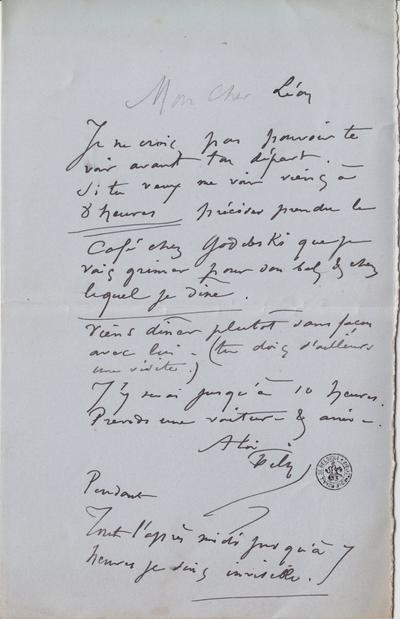 Mon cher Léon
Je ne crois pas pouvoir te
voir avant ton départ.
Si tu veux me voir viens à
8 heures précises prendre le
Café chez Godebski que je
vais grimer pour son bal & chez
lequel je dîne.
viens dîner plutôt sans façon
avec lui - (tu dois d'ailleurs
une visite.)
J'y serai jusqu'à 10 heures.
Prends une voiture &
A toi
Fély
Pendant
Tout l'après midi jusqu'à 7
heures je suis invisible.